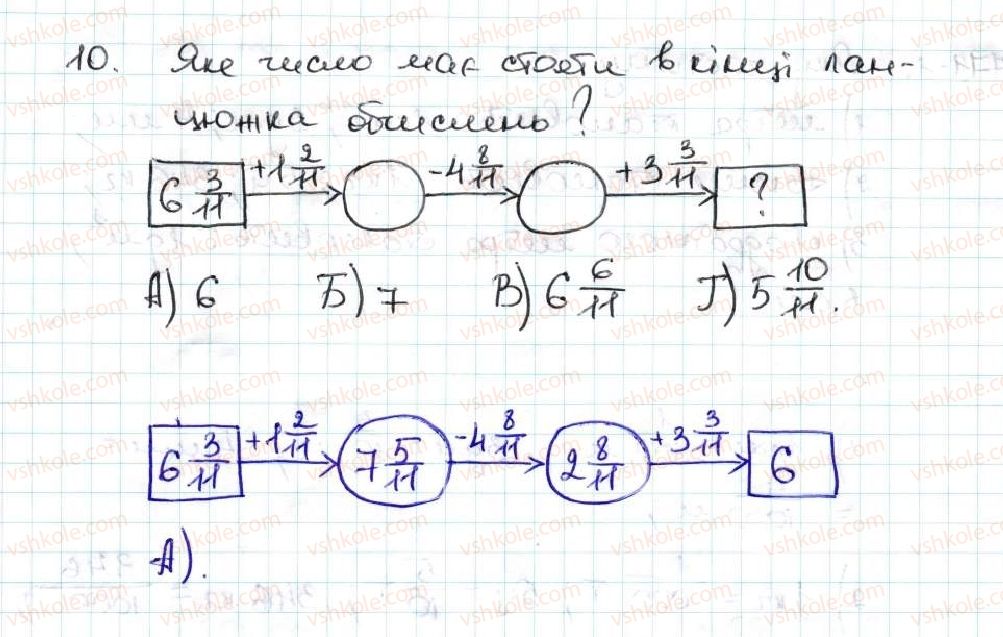 10. Яке число має стояти в кінці лан-
цюжка обчислень?
6 3/11 +1 2/11 -4 8/11 +3 3/11 ?
А) 6 Б) 7 В) 6 6/11 Г) 5 10/11.
6 3/11 +1 2/11 7 5/11 -4 8/11 2 8/11 +3 3/11 6
А).